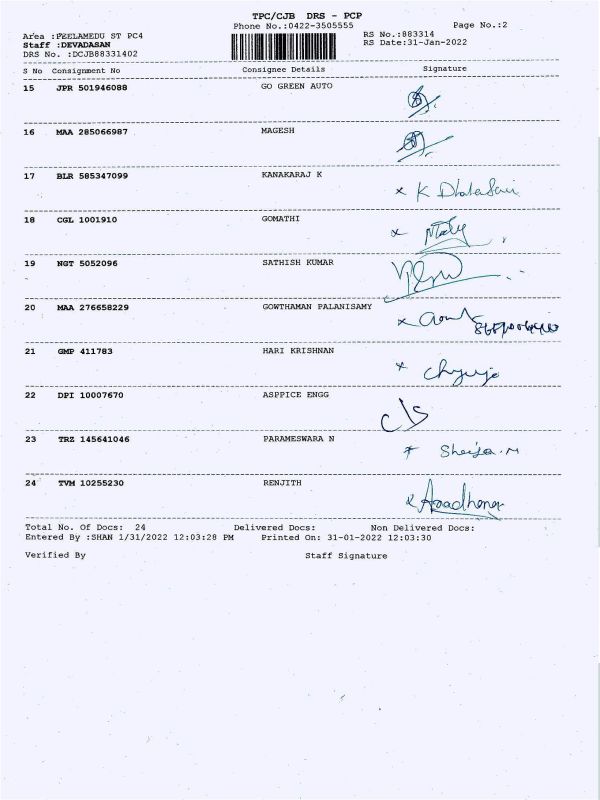 TPC/CJB DRS - PCP
Phone No.:0422-3505555
Page No.:2
Area :PEELAMEDU ST PC4
RS No.:883314
Staff :DEVADASAN
RS Date:31-Jan-2022
DRS No. :DCJB88331402
S No Consignment No Consignee Details Signature
15 JPR 501946088 GO GREEN AUTO
16 MAA 285066987 MAGESH
17 BLR 585347099 KANAKARAJ K
x K
18 CGL 1001910 GOMATHI
x
19 NGT 5052096 SATHISH KUMAR
20 MAA 276658229 GOWTHAMAN PALANISAMY
x
21 GMP 411783 HARI KRISHNAN
x
22 DPI 10007670 ASPPICE ENGG
23 TRZ 145641046 PARAMESWARA N
24 TVM 10255230 RENJITH
x Aradhana
Total No. Of Docs: 24 Delivered Docs: Non Delivered Docs:
Entered By :SHAN 1/31/2022 12:03:28 PM Printed On: 31-01-2022 12:03:30
Verified By Staff Signature